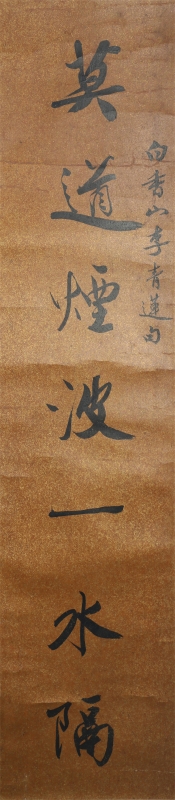 白香山李青蓮句
莫道煙波一水隔